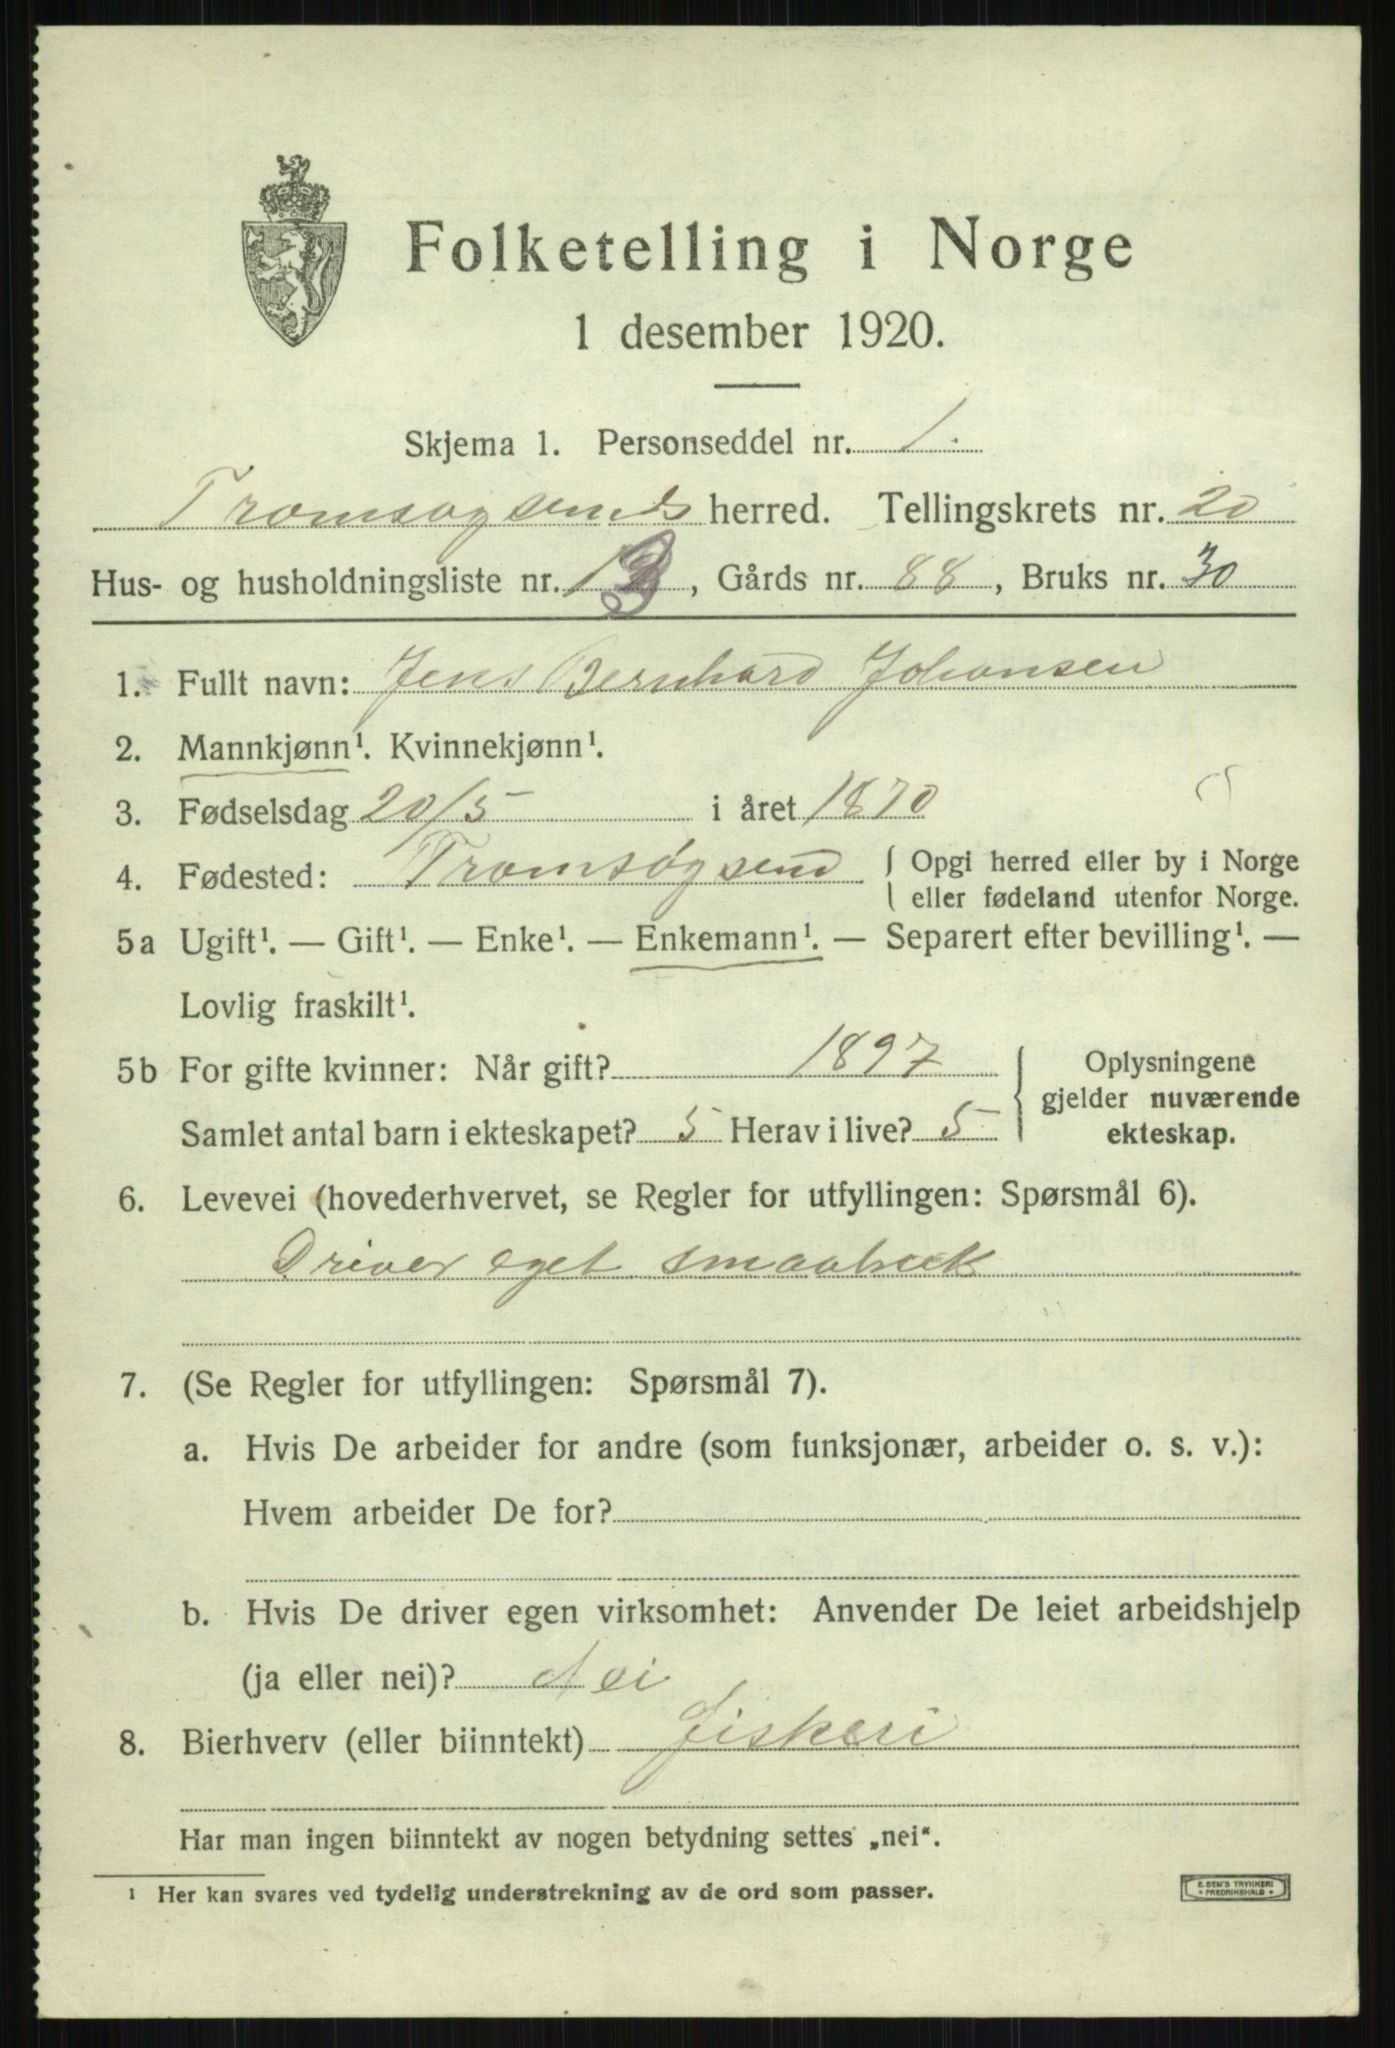 Folketelling i Norge
1 desember 1920.
Skjema 1. Personseddel nr. 1.
Tromsøysunds herred. Tellingskrets nr. 20
Hus- og husholdningsliste nr. 13, Gårds nr. 88, Bruks nr. 30
1. Fullt navn: Jens Bernhard Johansen
2. Mannkjønn¹. Kvinnekjønn¹.
3. Fødselsdag 20/5 i året 1870
4. Fødested: Tromsøysund { Opgi herred eller by i Norge
eller fødeland utenfor Norge.
5a Ugift¹. — Gift¹. — Enke¹. — Enkemann¹. — Separert efter bevilling¹. —
Lovlig fraskilt¹.
5b For gifte kvinner: Når gift? 1897
Samlet antal barn i ekteskapet? 5 Herav i live? 5
Oplysningene
gjelder nuværende
ekteskap.
6. Levevei (hovederhvervet, se Regler for utfyllingen: Spørsmål 6).
Driver eget smaabruk
7. (Se Regler for utfyllingen: Spørsmål 7).
a. Hvis De arbeider for andre (som funksjonær, arbeider o. s. v.):
Hvem arbeider De for?
b. Hvis De driver egen virksomhet: Anvender De leiet arbeidshjelp
(ja eller nei)? Nei
8. Bierhverv (eller biinntekt) Fiskeri
Har man ingen biinntekt av nogen betydning settes „nei“.
¹ Her kan svares ved tydelig understrekning av de ord som passer.
E. SEM'S TRYKKERI
FREDRIKSHALD